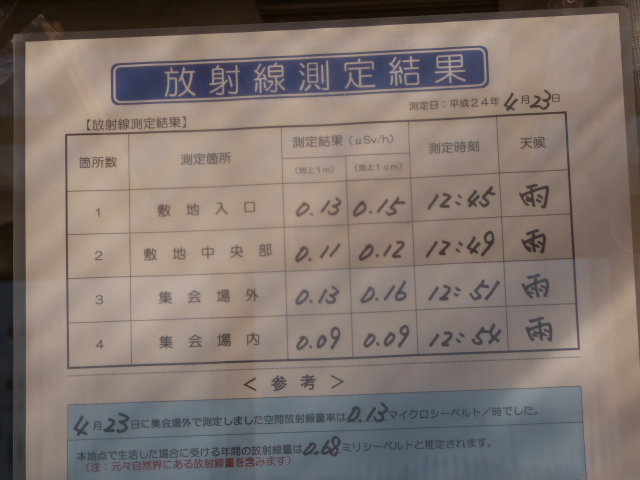 放射線測定結果
測定日：平成24年4月23日
【放射線測定結果】
箇所数 測定箇所 測定結果（μSv/h） 測定時刻 天候
（地上1m） （地上1cm）
1 敷地入口 0.13 0.15 12:45 雨
2 敷地中央部 0.11 0.12 12:49 雨
3 集会場外 0.13 0.16 12:51 雨
4 集会場内 0.09 0.09 12:54 雨
＜参考＞
4月23日に集会場外で測定しました空間放射線量率は0.13マイクロシーベルト／時でした。
本地点で生活した場合に受ける年間の放射線量は0.68ミリシーベルトと推定されます。
（注：元々自然界にある放射線量を含みます）